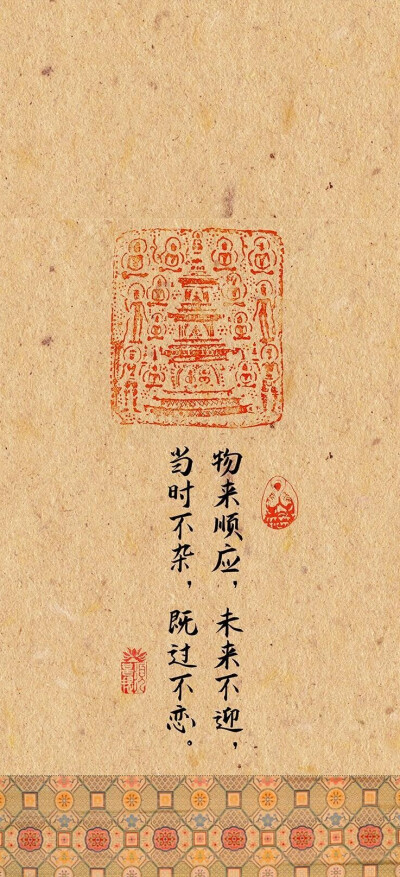 物来顺应，未来不迎，
当时不杂，既过不恋。